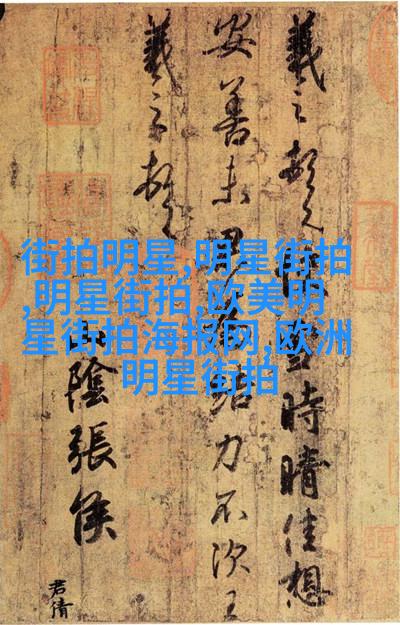 街拍明星,明星街拍
,明星街拍,欧美明
星街拍海报网,欧洲
明星街拍
羲之頓首雪時晴佳想
安善未果為結力不次王
羲之頓首
山陰張侯
君倩